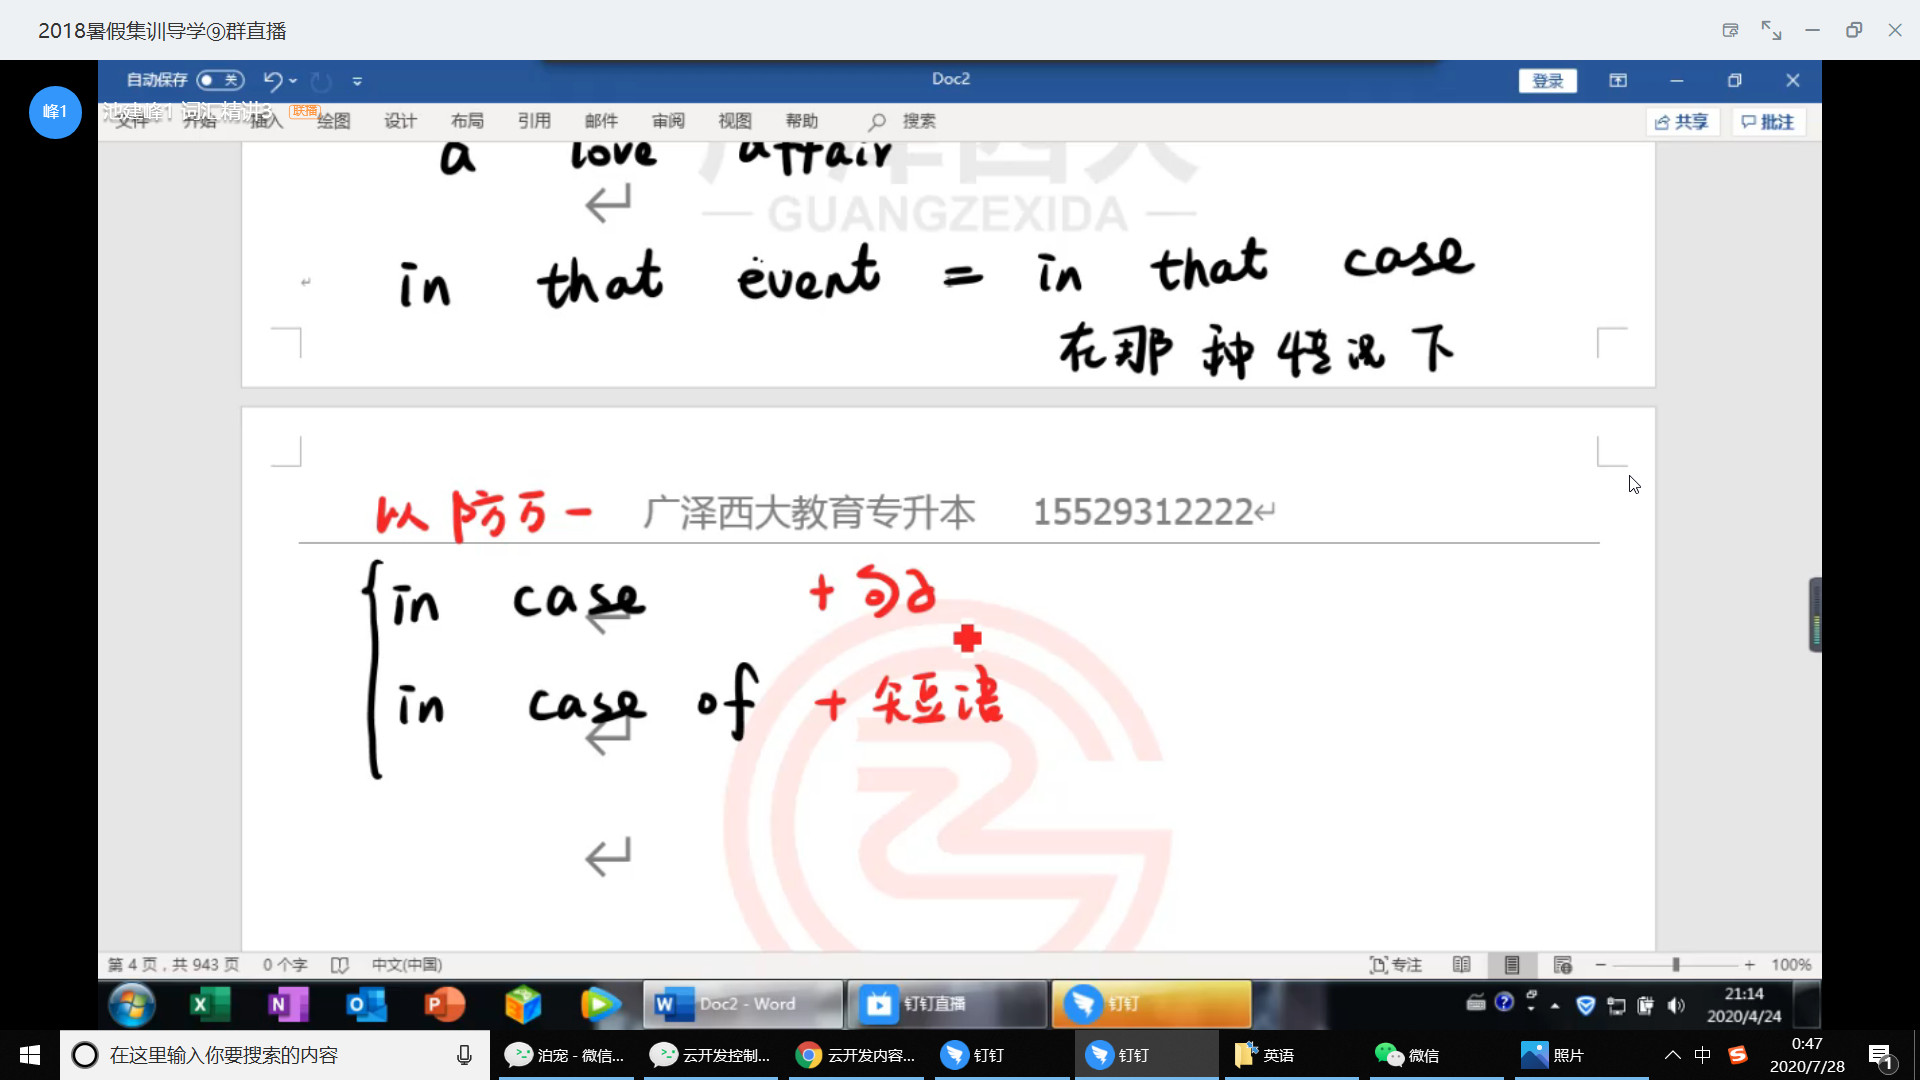 2018暑假集训导学⑨群直播
自动保存 关
Doc2
登录
峰1
池建峰1 词汇精讲3 联播
文件 开始 插入 绘图 设计 布局 引用 邮件 审阅 视图 帮助 搜索
共享 批注
a love affair
广泽西大
— GUANGZEXIDA —
in that event = in that case
在那种情况下
以防万一 广泽西大教育专升本 15529312222
in case + 句子
in case of + 短语
第 4 页，共 943 页 0 个字 中文(中国) 专注 100%
Doc2 - Word 钉钉直播 钉钉
21:14
2020/4/24
在这里输入你要搜索的内容
泊宠 - 微信... 云开发控制... 云开发内容... 钉钉 钉钉 英语 微信 照片 中
0:47
2020/7/28
1